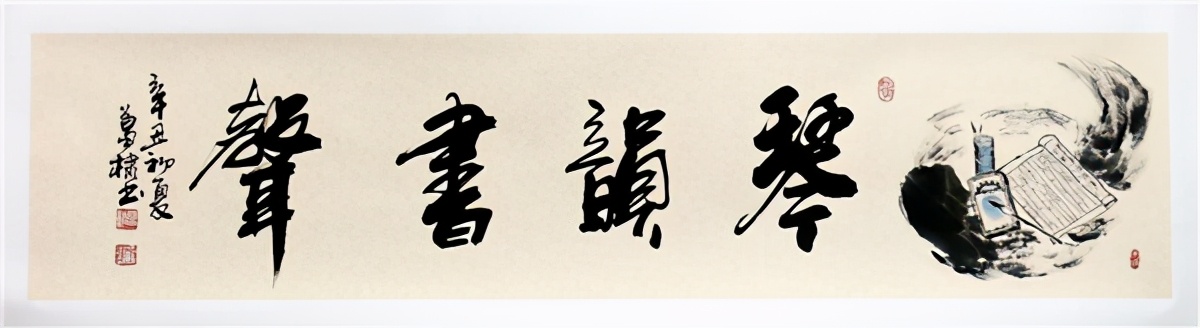 琴韻書聲
辛丑初夏
萬棣书